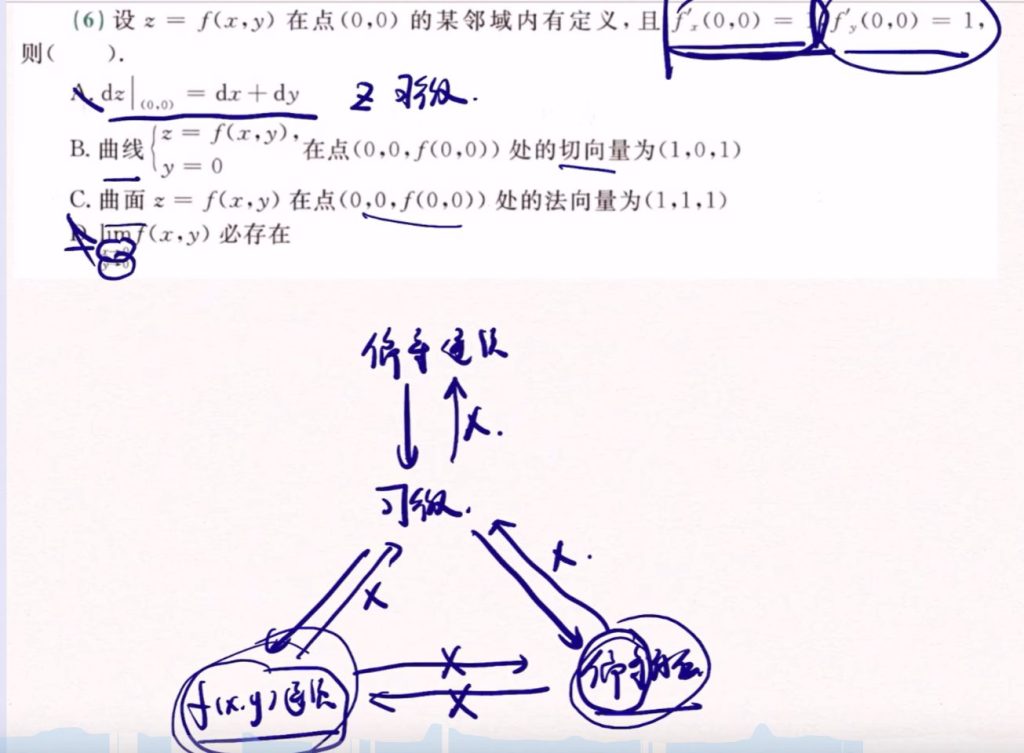 (6) 设 z = f(x,y) 在点(0,0) 的某邻域内有定义,且 f′ₓ(0,0) = f′ᵧ(0,0) = 1,
则( ).
A. dz|₍₀,₀₎ = dx+dy z 可微.
B. 曲线 { z = f(x,y), y = 0 在点(0,0,f(0,0)) 处的切向量为(1,0,1)
C. 曲面 z = f(x,y) 在点(0,0,f(0,0)) 处的法向量为(1,1,1)
lim f(x,y) 必存在
偏导连续
X.
可微.
X X.
X
f(x,y)连续 偏导
X